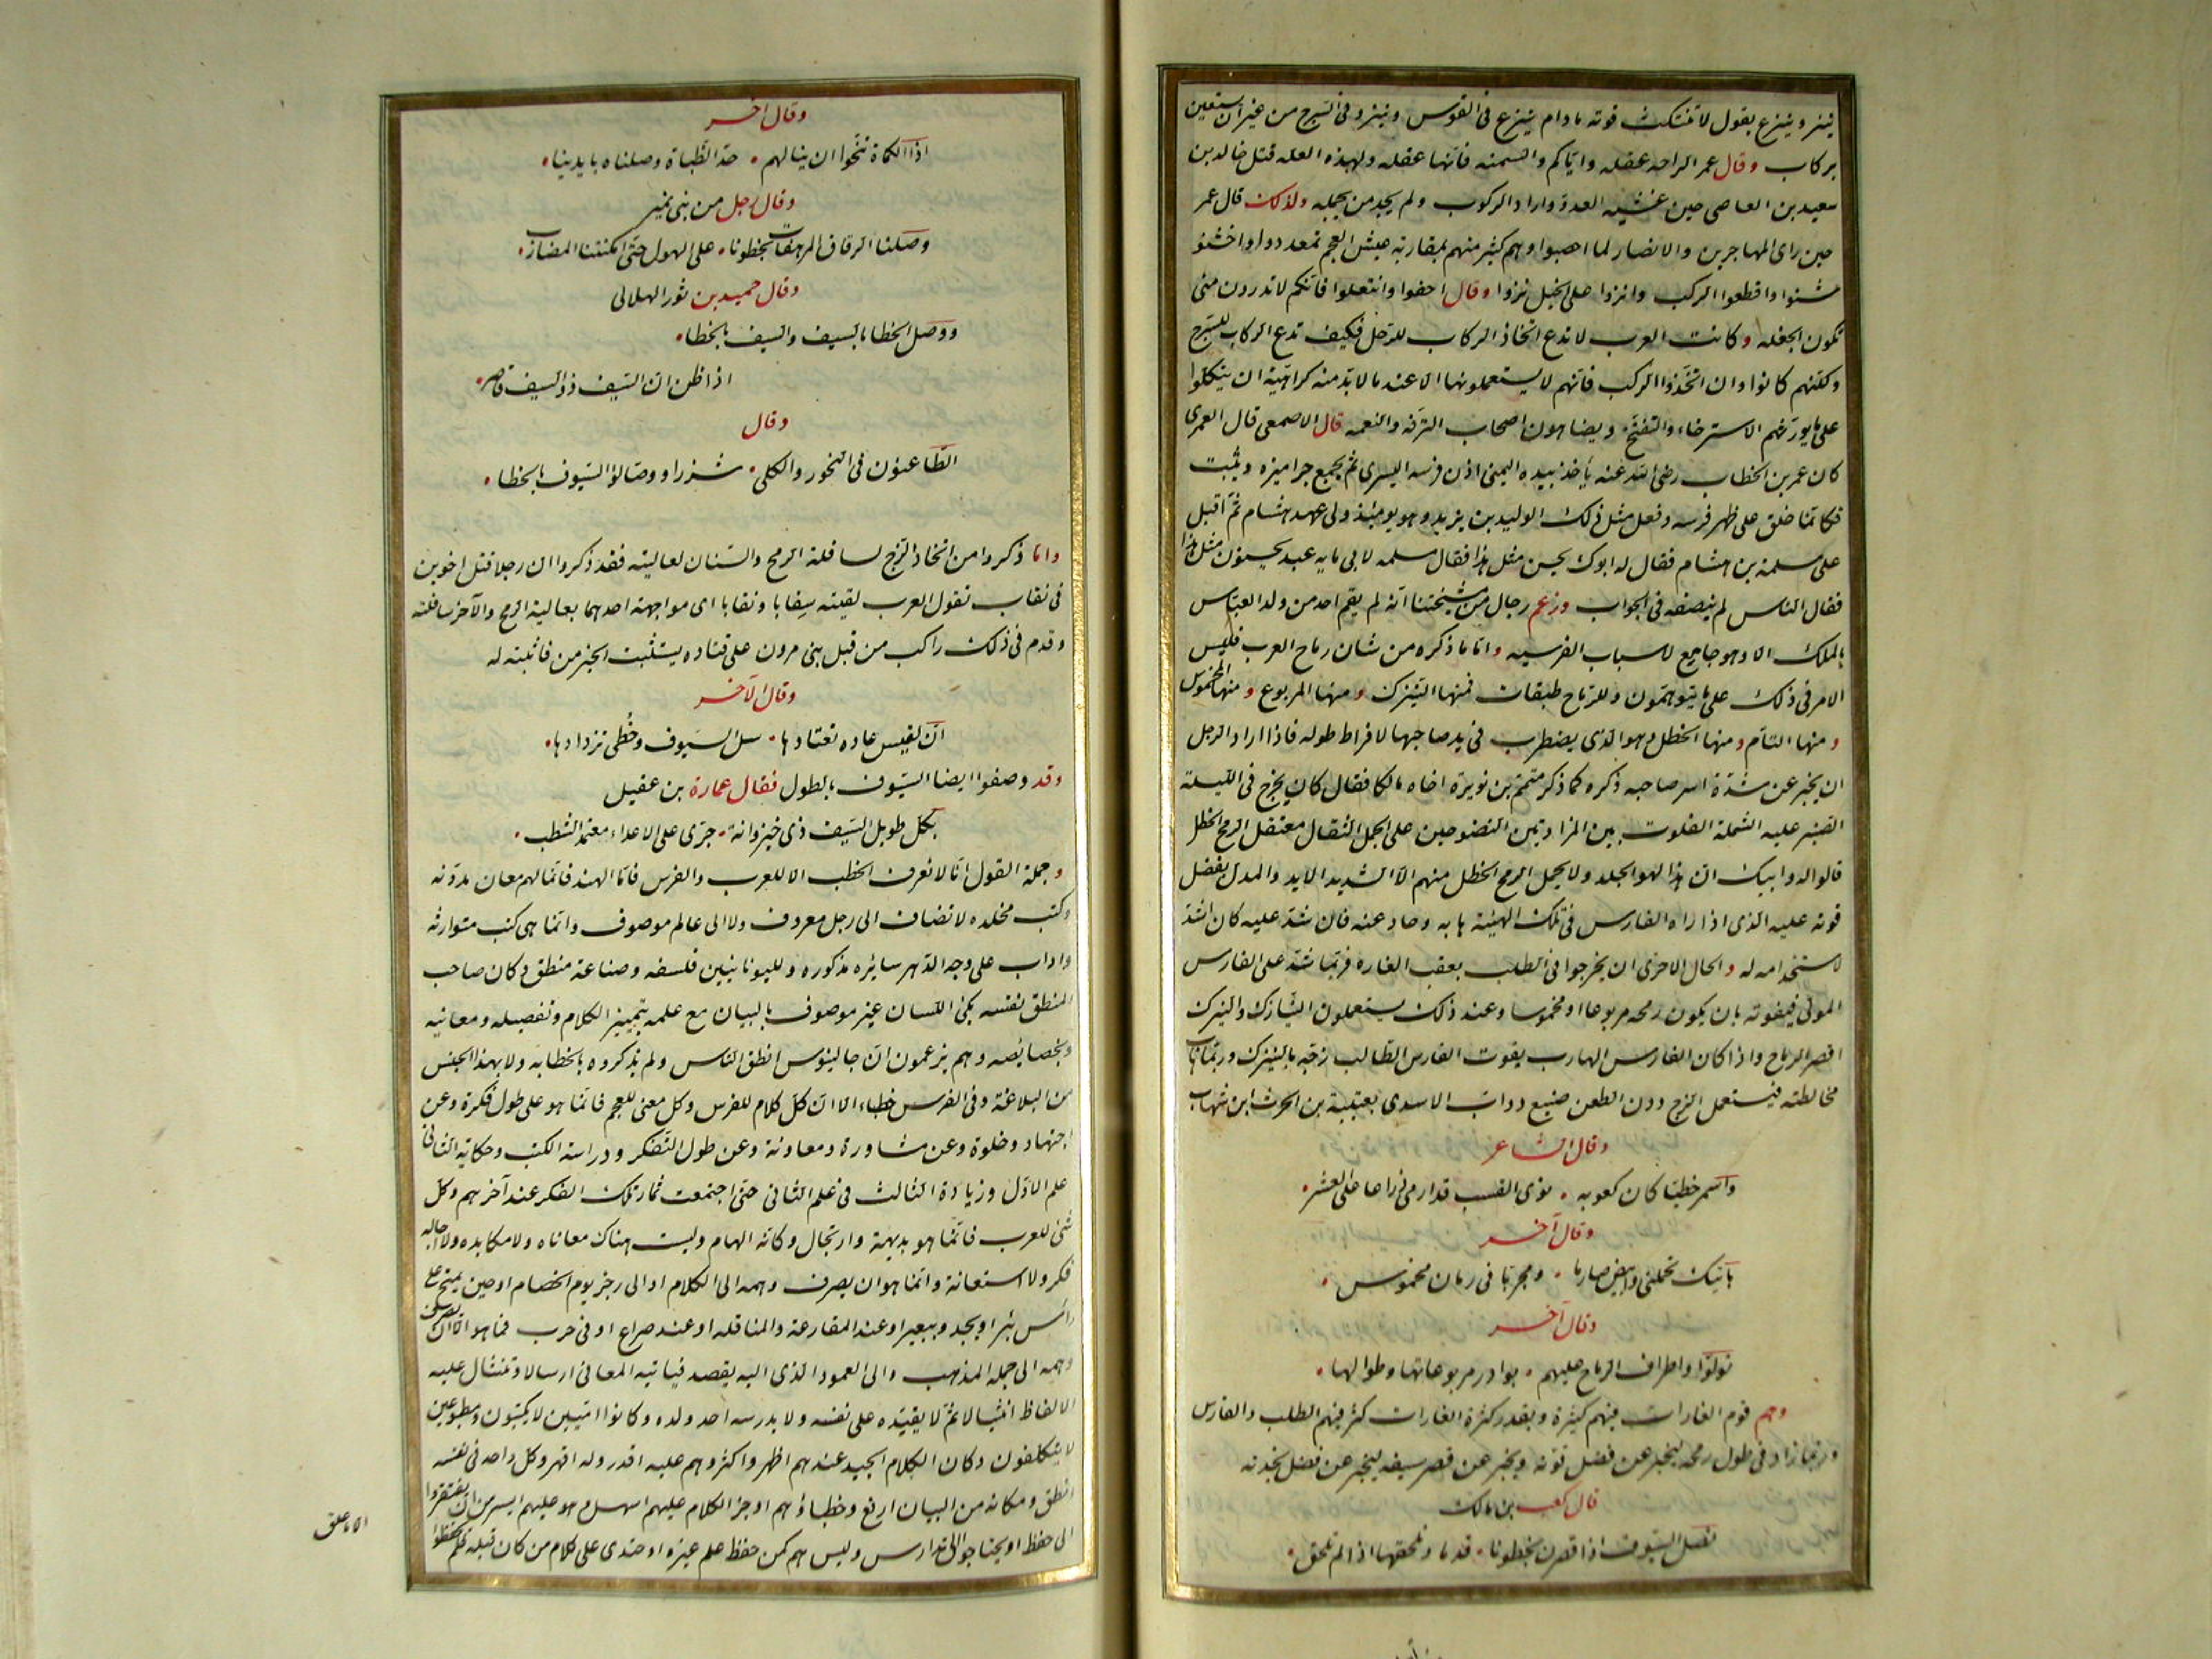 ينزو وينزع يقول لا تنتكث قوته ما دام ينزع فى القوس وينزو فى السرج من غير ان يستعين
بركاب وقال عمر الراحه عقله واياكم والسمنه فانها عقله ولهذه العله قتل خالد بن
سعيد بن العاصى حين غشيه العدو واراد الركوب ولم يجد من يحمله ولذلك قال عمر
حين راى المهاجرين والانصار لما اخصبوا وهم كثير منهم بمقاربة عيش العجم تمعددوا واخشو
شنوا واقطعوا الركب وانزوا على الخيل نزوا وقال احفوا وانتعلوا فانكم لا تدرون متى
تكون الجفله وكانت العرب لا تدع اتخاذ الركاب للرحل فكيف تدع الركاب للسرج
ولكنهم كانوا وان اتخذوا الركب فانهم لا يستعملونها الا عند ما لا بد منه كراهية ان يتكلوا
على ما يورثهم الاسترخاء والتفنخ ويضاهون اصحاب الترفه والنعمه قال الاصمعى قال العمرى
كان عمر بن الخطاب رضى الله عنه يأخذ بيده اليمنى اذن فرسه اليسرى ثم يجمع جراميزه ويثبت
فكانما خلق على ظهر فرسه وفعل مثل ذلك الوليد بن يزيد وهو يومئذ ولى عهد هشام ثم اقبل
على مسلمة بن هشام فقال له ابوك يحسن مثل هذا فقال مسلمه لابى مايه عبد يحسنون مثل هذا
فقال الناس لم ينصفه فى الجواب وزعم رجال من مشيختنا انه لم يقم احد من ولد العباس
بالملك الا وهو جامع لاسباب الفرسيه واما ما ذكره من شان رماح العرب فليس
الامر فى ذلك على ما يتوهمون وللرماح طبقات فمنها النيزك ومنها المربوع ومنها المخموس
ومنها التام ومنها الخطل وهو الذى يضطرب فى يد صاحبها لافراط طوله فاذا اراد الرجل
ان يخبر عن شدة اسر صاحبه ذكره كما ذكر متمم بن نويرة اخاه مالكا فقال كان يخرج فى الليلة
الصنبر عليه الشملة الفلوت بين المزادتين النضوحين على الجمل الثقال معتقل الرمح الخطل
قالوا له وابيك ان هذا لهو الجلد ولا يحمل الرمح الخطل منهم الا الشديد الايد والمدل بفضل
قوته عليه الذى اذا راه الفارس فى تلك الهيئة هابه وحاد عنه فان شد عليه كان اشد
لاستخدامه له والحال الاخرى ان يخرجوا فى الطلب بعقب الغارة فربما شد على الفارس
المولى فيفوته بان يكون رمحه مربوعا او مخموسا وعند ذلك يستعملون النيازك والنيزك
اقصر الرماح واذا كان الفارس الهارب يفوت الفارس الطالب زجه بالنيزك وربما هاب
مخالطته فيستعمل الزج دون الطعن صنيع دواب الاسدى بعتيبة بن الحرث ابن شهاب
وقال الشاعر
واسمر خطيا كان كعوبه ٠ نوى القسب قد ارمى ذراعا على العشر ٠
وقال آخر
هاتيك تحملنى وابيض صارما ٠ ومجربا فى رمان مخموس ٠
وقال آخر
فولوا واطراف الرماح عليهم ٠ بوادر مربوعاتها وطوالها ٠
وهم قوم الغارات فيهم كثيرة وبقدر كثرة الغارات كثر فيهم الطلب والفارس
وربما زاد فى طول رمحه ليخبر عن فضل قوته ويخبر عن قصر سيفه ليخبر عن فضل نجدته
قال كعب بن مالك
نصل السيوف اذا قصرن بخطونا ٠ قدما ونلحقها اذا لم تلحق ٠
وقال اخر
اذا الكماة تنحوا ان ينالهم ٠ حد الظباة وصلناه بايدينا ٠
وقال رجل من بنى نمير
وصلنا الرقاق المرهفات بخطونا ٠ على الهول حتى امكنتنا المضارب ٠
وقال حميد بن ثور الهلالى
ووصل الخطا بالسيف والسيف بالخطا ٠
اذا ظن ان السيف ذو السيف قاصر ٠
وقال
الطاعنون فى النحور والكلى ٠ شزرا ووصالوا السيوف بالخطا ٠
واما ذكروا من اتخاذ الزج لسافلة الرمح والسنان لعاليته فقد ذكروا ان رجلا قتل اخوين
فى نقاب تقول العرب لقيته نقابا ونقابا اى مواجهة احدهما بعالية الرمح والآخر بسافلته
وقدم فى ذلك راكب من قبل بنى مرون على قتاده يستثبت الخبر من فاثبته له
وقال الآخر
ان لقيس عاده تعتادها ٠ سل السيوف وخطى تزدادها ٠
وقد وصفوا ايضا السيوف بالطول فقال عمارة بن عقيل
بكل طويل السيف ذى خيزرانة ٠ جرى على الاعداء معتمد الشطب ٠
وجملة القول انا لا نعرف الخطب الا للعرب والفرس فاما الهند فانما لهم معان مدونه
وكتب مخلده لا تضاف الى رجل معروف ولا الى عالم موصوف وانما هى كتب متوارثه
واداب على وجه الدهر سايره مذكوره ولليونانيين فلسفه وصناعة منطق وكان صاحب
المنطق نفسه بكى اللسان غير موصوف بالبيان مع علمه بتمييز الكلام وتفصيله ومعانيه
وبخصائصه وهم يزعمون ان جالينوس انطق الناس ولم يذكروه بالخطابه ولا بهذا الجنس
من البلاغة وفى الفرس خطباء الا ان كل كلام للفرس وكل معنى للعجم فانما هو على طول فكرة وعن
اجتهاد وخلوة وعن مشاورة ومعاونة وعن طول التفكر ودراسة الكتب وحكاية الثانى
علم الاول وزيادة الثالث فى علم الثانى حتى اجتمعت ثمار تلك الفكر عند آخرهم وكل
شئ للعرب فانما هو بديهة وارتجال وكانه الهام وليست هناك معاناه ولا مكابده ولا اجاله
فكر ولا استعانة وانما هو ان يصرف وهمه الى الكلام او الى رجز يوم الخصام او حين يمتح على
رأس بئر او يحدو ببعير او عند المقارعة والمناقله او عند صراع او فى حرب فما هو الا ان يصرف
وهمه الى جملة المذهب والى العمود الذى اليه يقصد فياتيه المعانى ارسالا وتنثال عليه
الالفاظ انثيالا ثم لا يقيده على نفسه ولا يدرسه احد ولده وكانوا اميين لا يكتبون ومطبوعين
لا يتكلفون وكان الكلام الجيد عندهم اظهر واكثر وهم عليه اقدر وله اقهر وكل واحد فى نفسه
انطق ومكانه من البيان ارفع وخطباؤهم اوجز الكلام عليهم اسهل وهو عليهم ايسر من ان يفتقروا
الى حفظ او يحتاجوا الى تدارس وليس هم كمن حفظ علم غيره او احتذى على كلام من كان قبله فلم يحفظوا
الا ما علق